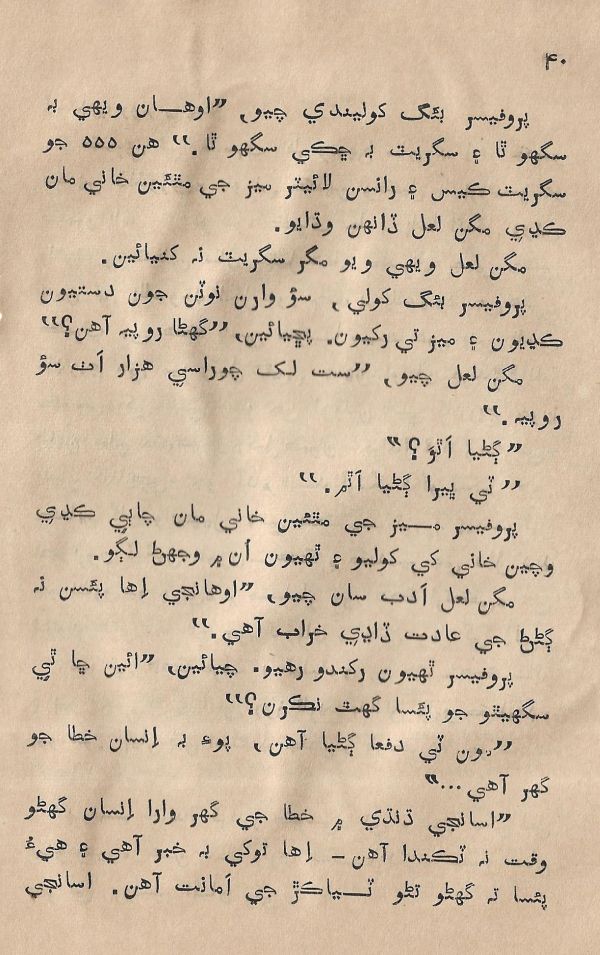 ۴۰
پروفيسر بئگ کوليندي چيو، ”اوهـان ويهي به
سگهو ٿا ۽ سگريٽ به ڇڪي سگهو ٿا.“ هن ۵۵۵ جو
سگريٽ ڪيس ۽ رانسن لائيٽر ميز جي مٿئين خاني مان
ڪڍي مگن لعل ڏانهن وڌايو.
مگن لعل ويهي ويو مگر سگريٽ نه کنيائين.
پروفيسر بئگ کولي، سؤ وارن نوٽن جون دستيون
ڪڍيون ۽ ميز تي رکيون. پڇيائين، ”گهڻا روپيه آهن؟“
مگن لعل چيو، ”ست لک چوراسي هزار اَٺ سؤ
روپيه.“
”ڳڻيا اَٿوَ؟“
”ٽي ڀيرا ڳڻيا اَٿم.“
پروفيسر مـيز جي مٿئين خاني مان چاٻي ڪڍي
وچين خاني کي کوليو ۽ ٿهيون اُن ۾ وجهڻ لڳو.
مگن لعل اَدب سان چيو، ”اوهانجي اِها پئسن نه
ڳڻڻ جي عادت ڏاڍي خراب آهي.“
پروفيسر ٿهيون رکندو رهيو. چيائين، ”ائين ڇا ٿي
سگهيٿو جو پئسا گهٽ نڪرن؟“
”مون ٽي دفعا ڳڻيا آهن، پوءِ به اِنسان خطا جو
گهر آهي...“
”اسانجي ڌنڌي ۾ خطا جي گهر وارا اِنسان گهڻو
وقت نه ٽڪندا آهن - اِها توکي به خبر آهي ۽ هيءُ
پئسا ته گهڻو تڻو ٽـياڪڙ جي اَمانت آهن. اسانجي